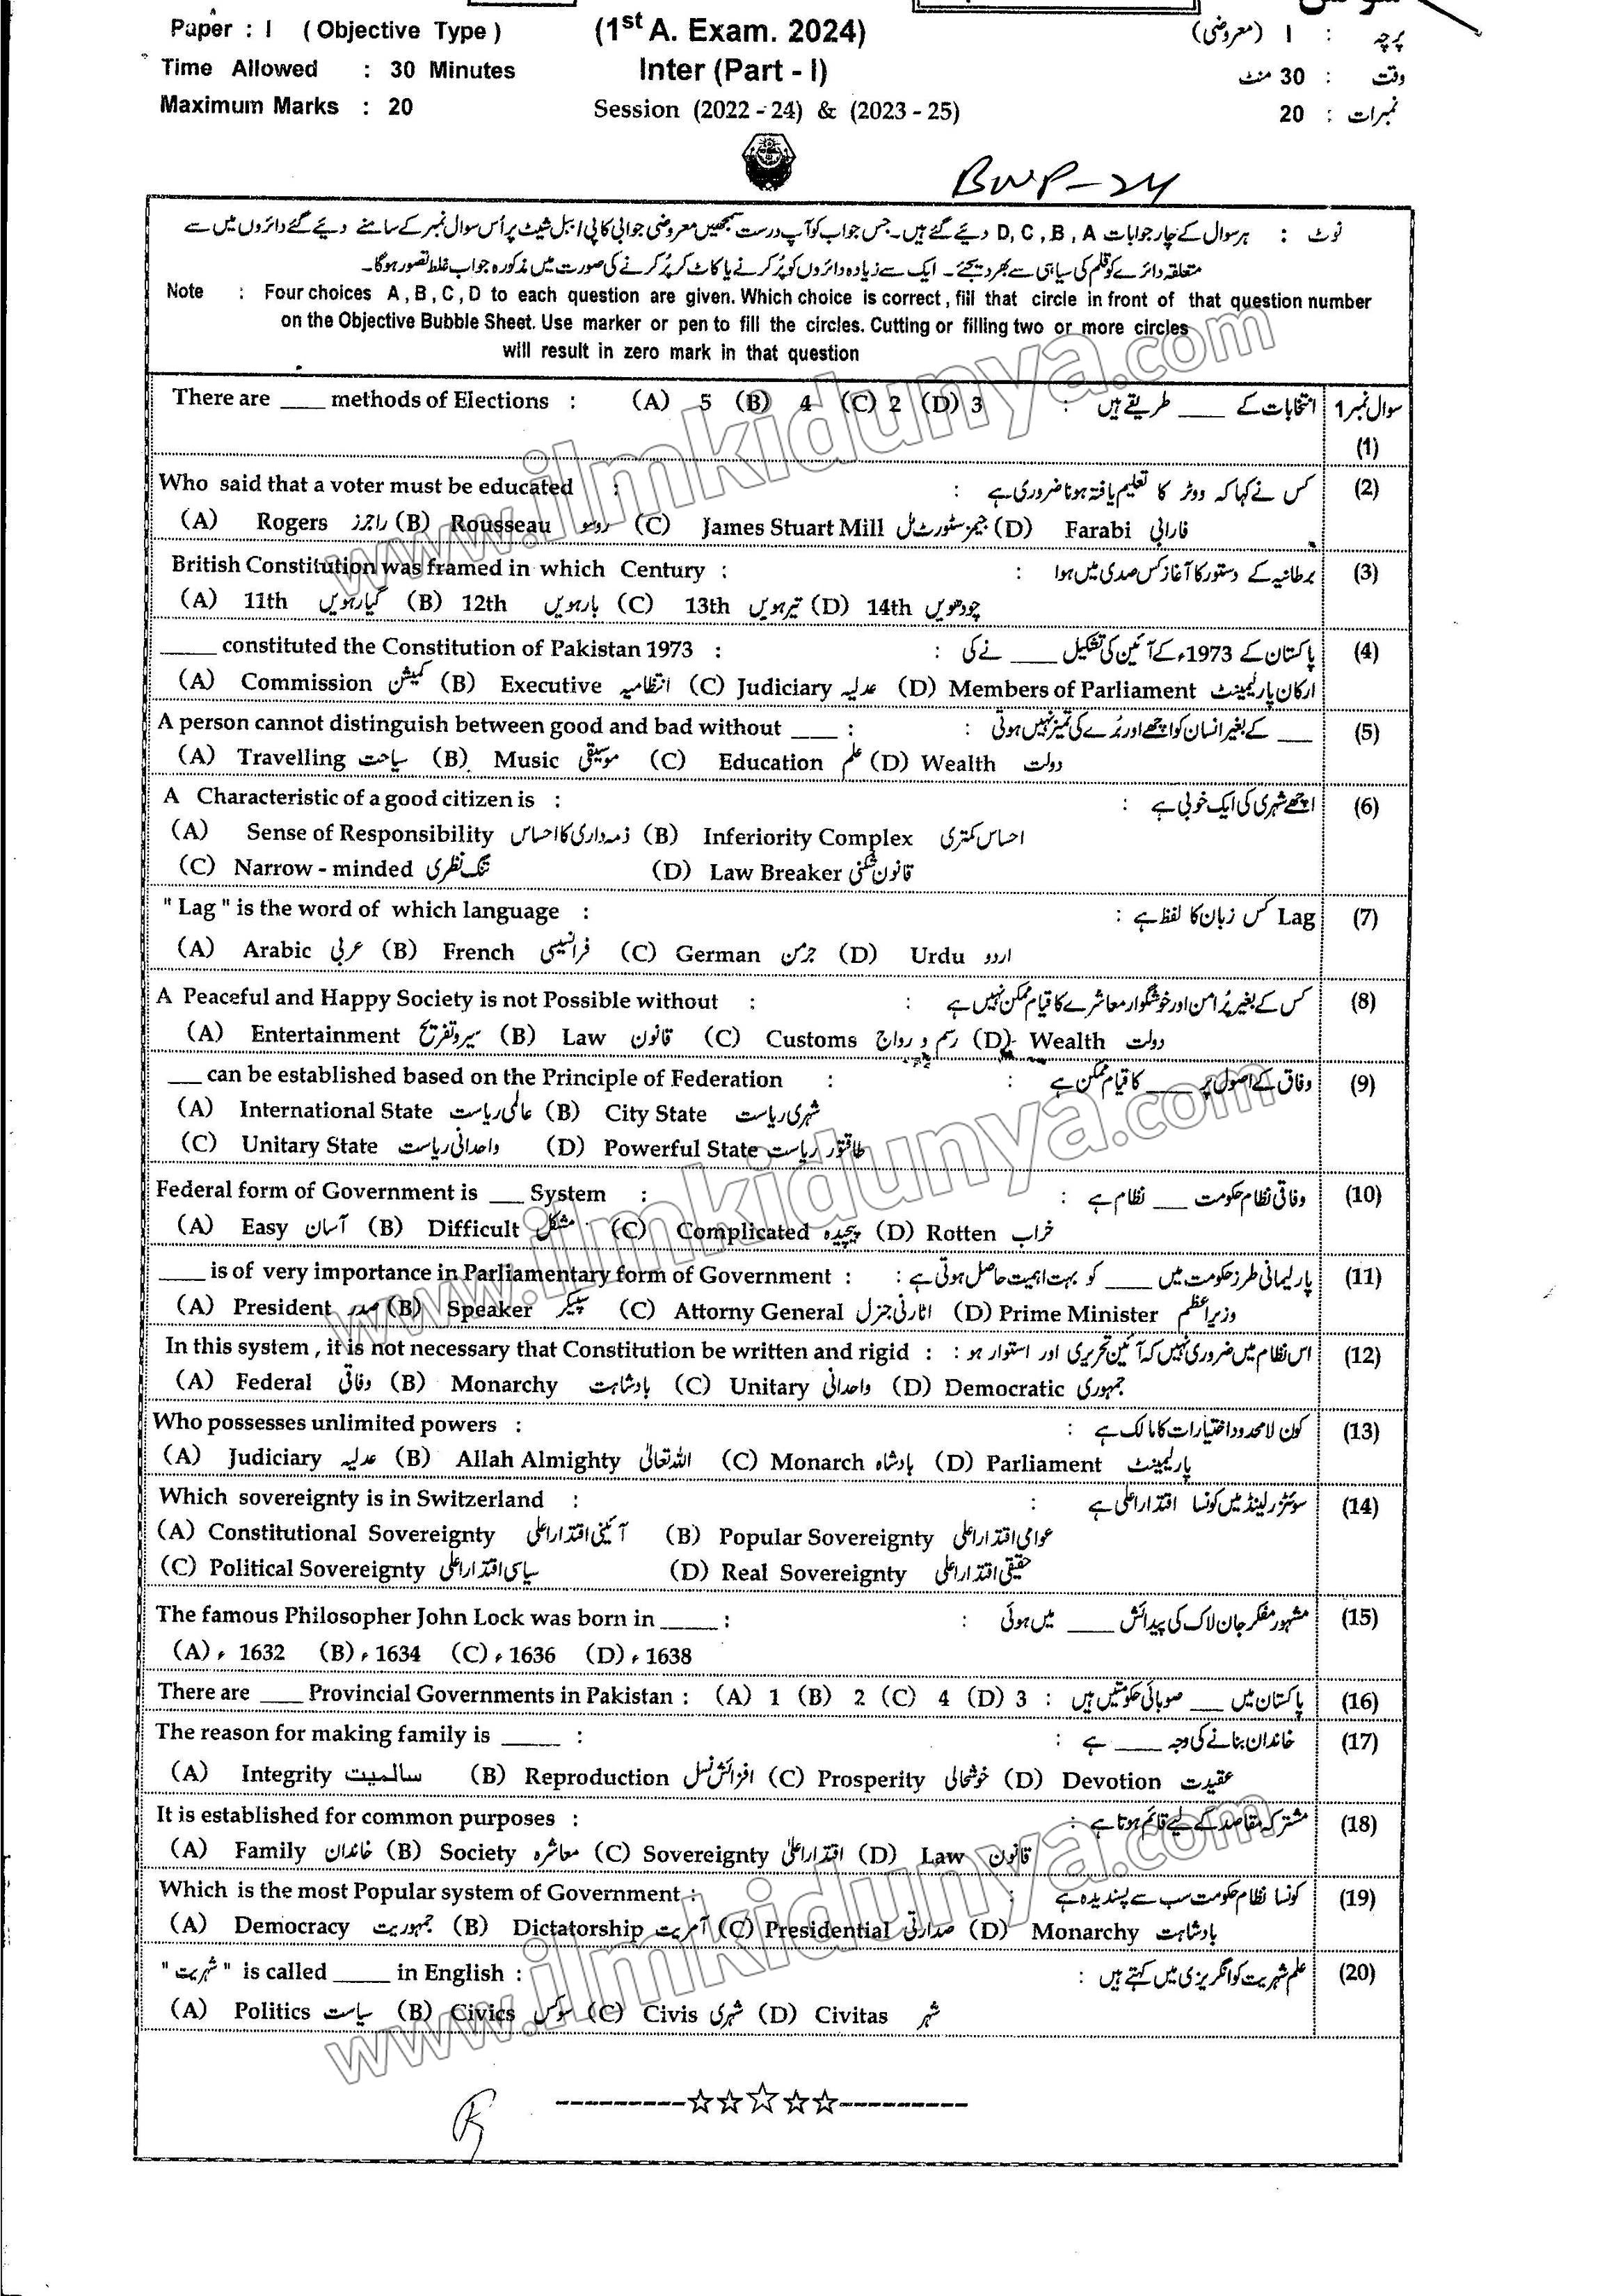 Paper : I ( Objective Type ) (1st A. Exam. 2024) پرچہ : I (معروضی)
Time Allowed : 30 Minutes Inter (Part - I) وقت : 30 منٹ
Maximum Marks : 20 Session (2022 - 24) & (2023 - 25) نمبرات : 20
BWP-24
نوٹ : ہر سوال کے چار جوابات D, C , B , A دیئے گئے ہیں۔ جس جواب کو آپ درست سمجھیں معروضی جوابی کاپی / ببل شیٹ پر اُس سوال نمبر کے سامنے دیئے گئے دائروں میں سے
متعلقہ دائرے کو قلم کی سیاہی سے بھر دیجئے۔ ایک سے زیادہ دائروں کو پُر کرنے یا کاٹ کر پُر کرنے کی صورت میں مذکورہ جواب غلط تصور ہوگا۔
Note : Four choices A , B , C , D to each question are given. Which choice is correct , fill that circle in front of that question number
on the Objective Bubble Sheet. Use marker or pen to fill the circles. Cutting or filling two or more circles
will result in zero mark in that question
There are ____ methods of Elections : (A) 5 (B) 4 (C) 2 (D) 3 انتخابات کے ____ طریقے ہیں : سوال نمبر 1
(1)
Who said that a voter must be educated : کس نے کہا کہ ووٹر کا تعلیم یافتہ ہونا ضروری ہے : (2)
(A) Rogers راجرز (B) Rousseau روسو (C) James Stuart Mill جیمز سٹورٹ مل (D) Farabi فارابی
British Constitution was framed in which Century : برطانیہ کے دستور کا آغاز کس صدی میں ہوا : (3)
(A) 11th گیارہویں (B) 12th بارہویں (C) 13th تیرہویں (D) 14th چودھویں
_____ constituted the Constitution of Pakistan 1973 : پاکستان کے 1973ء کے آئین کی تشکیل ____ نے کی : (4)
(A) Commission کمیشن (B) Executive انتظامیہ (C) Judiciary عدلیہ (D) Members of Parliament ارکان پارلیمینٹ
A person cannot distinguish between good and bad without ____ : ___ کے بغیر انسان کو اچھے اور بُرے کی تمیز نہیں ہوتی : (5)
(A) Travelling سیاحت (B) Music موسیقی (C) Education علم (D) Wealth دولت
A Characteristic of a good citizen is : اچھے شہری کی ایک خوبی ہے : (6)
(A) Sense of Responsibility ذمہ داری کا احساس (B) Inferiority Complex احساس کمتری
(C) Narrow - minded تنگ نظری (D) Law Breaker قانون شکنی
" Lag " is the word of which language : Lag کس زبان کا لفظ ہے : (7)
(A) Arabic عربی (B) French فرانسیسی (C) German جرمن (D) Urdu اردو
A Peaceful and Happy Society is not Possible without : کس کے بغیر پُر امن اور خوشگوار معاشرے کا قیام ممکن نہیں ہے : (8)
(A) Entertainment سیر و تفریح (B) Law قانون (C) Customs رسم و رواج (D) Wealth دولت
___ can be established based on the Principle of Federation : وفاق کے اصول پر ____ کا قیام ممکن ہے : (9)
(A) International State عالمی ریاست (B) City State شہری ریاست
(C) Unitary State واحدانی ریاست (D) Powerful State طاقتور ریاست
Federal form of Government is ___ System : وفاقی نظام حکومت ___ نظام ہے : (10)
(A) Easy آسان (B) Difficult مشکل (C) Complicated پیچیدہ (D) Rotten خراب
____ is of very importance in Parliamentary form of Government : پارلیمانی طرز حکومت میں ____ کو بہت اہمیت حاصل ہوتی ہے : (11)
(A) President صدر (B) Speaker سپیکر (C) Attorny General اٹارنی جنرل (D) Prime Minister وزیراعظم
In this system , it is not necessary that Constitution be written and rigid : اس نظام میں ضروری نہیں کہ آئین تحریری اور استوار ہو : (12)
(A) Federal وفاقی (B) Monarchy بادشاہت (C) Unitary واحدانی (D) Democratic جمہوری
Who possesses unlimited powers : کون لامحدود اختیارات کا مالک ہے : (13)
(A) Judiciary عدلیہ (B) Allah Almighty اللہ تعالیٰ (C) Monarch بادشاہ (D) Parliament پارلیمینٹ
Which sovereignty is in Switzerland : سوئٹزرلینڈ میں کونسا اقتدار اعلیٰ ہے : (14)
(A) Constitutional Sovereignty آئینی اقتدار اعلیٰ (B) Popular Sovereignty عوامی اقتدار اعلیٰ
(C) Political Sovereignty سیاسی اقتدار اعلیٰ (D) Real Sovereignty حقیقی اقتدار اعلیٰ
The famous Philosopher John Lock was born in _____ : مشہور مفکر جان لاک کی پیدائش ____ میں ہوئی : (15)
(A) ء 1632 (B) ء 1634 (C) ء 1636 (D) ء 1638
There are ____ Provincial Governments in Pakistan : (A) 1 (B) 2 (C) 4 (D) 3 پاکستان میں ___ صوبائی حکومتیں ہیں : (16)
The reason for making family is _____ : خاندان بنانے کی وجہ ____ ہے : (17)
(A) Integrity سالمیت (B) Reproduction افزائش نسل (C) Prosperity خوشحالی (D) Devotion عقیدت
It is established for common purposes : مشترکہ مقاصد کے لیے قائم ہوتا ہے : (18)
(A) Family خاندان (B) Society معاشرہ (C) Sovereignty اقتدار اعلیٰ (D) Law قانون
Which is the most Popular system of Government : کونسا نظام حکومت سب سے پسندیدہ ہے : (19)
(A) Democracy جمہوریت (B) Dictatorship آمریت (C) Presidential صدارتی (D) Monarchy بادشاہت
" شہریت " is called _____ in English : علم شہریت کو انگریزی میں کہتے ہیں : (20)
(A) Politics سیاست (B) Civics سوکس (C) Civis شہری (D) Civitas شہر
www.ilmkidunya.com
www.ilmkidunya.com
www.ilmkidunya.com